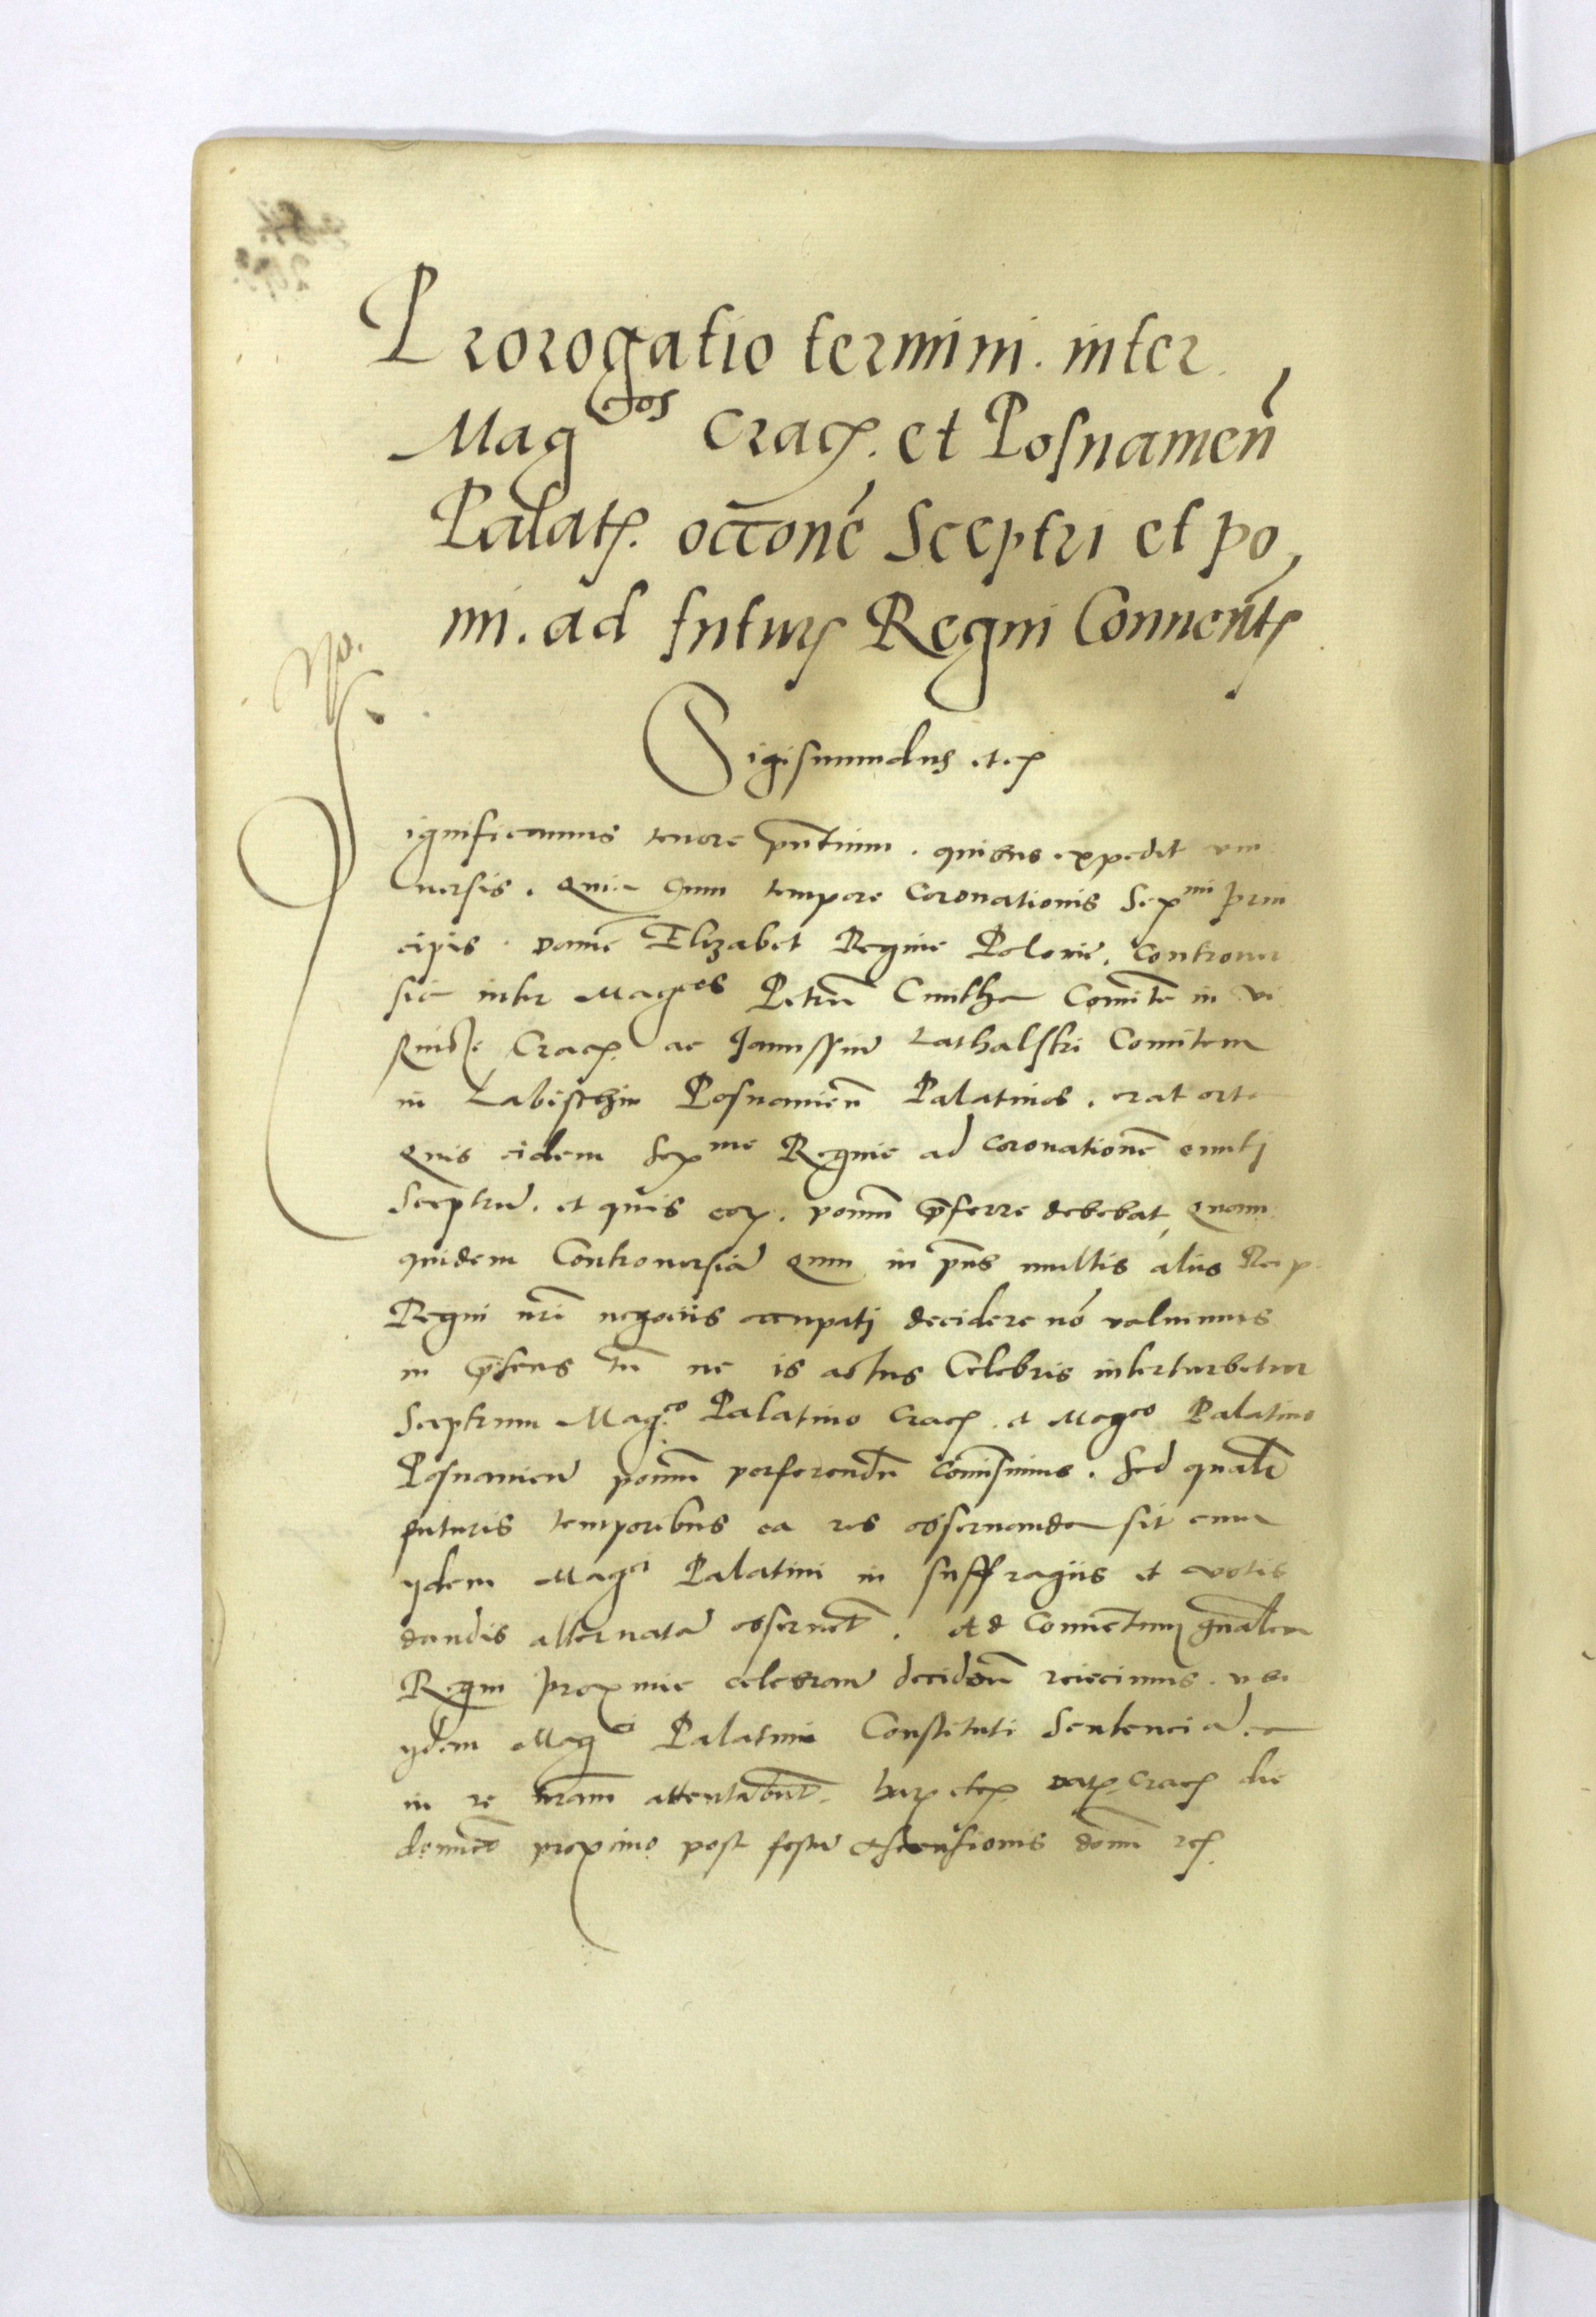 Prorogatio termini. inter
Mag^cos Crac. et Posnanien̄
Palat. occone Sceptri et po,
mi. ad futur Regni Conuent
Sigismundus etc
Significamus tenore pn̄tium. quibus expedit vni
uersis. Quia Cum tempore Coronationis Ser^mi prin
cipis. domē Elizabet Regine Polonie. Controuer
sia inter Mag^cos Petrū Cmitha Comitē in Vi
snicze Crac. ac Janussiū Lathalski Comitem
in Labischin Posnanien̄ Palatinos. erat orta
Quis eidem Ser^me Regine ad coronationē eunti
Sceptrū. et quis eor. pomū p̄ferre debebat, Quam
quidem Controuersiā Qum in pn̄s multis alijs Reip
Regni nrī negotiis occupatj decidere nō valuimus
in p̄sens tn̄ ne is actus Celebris interturbetur
Sceptrum Mag^co Palatino Crac. et Mag^co Palatino
Posnanien̄ pomū perferendū Com̄isimus. Sed qualr̄
futuris temporibus ea res obseruanda sit cum
ydem Mag^ci Palatini in suffragiis et votis
dandis alternatā obseruēt. Ad Conuentum gn̄alem
Regni proxime celebran̄ deciden̄ reiecimus. vbi
ydem Mag^ci Palatini Constituti Sentenciā
in re nr̄am attentabunt. har etc Dat. Crac die
domīco proximo post festū Ascensionis domī